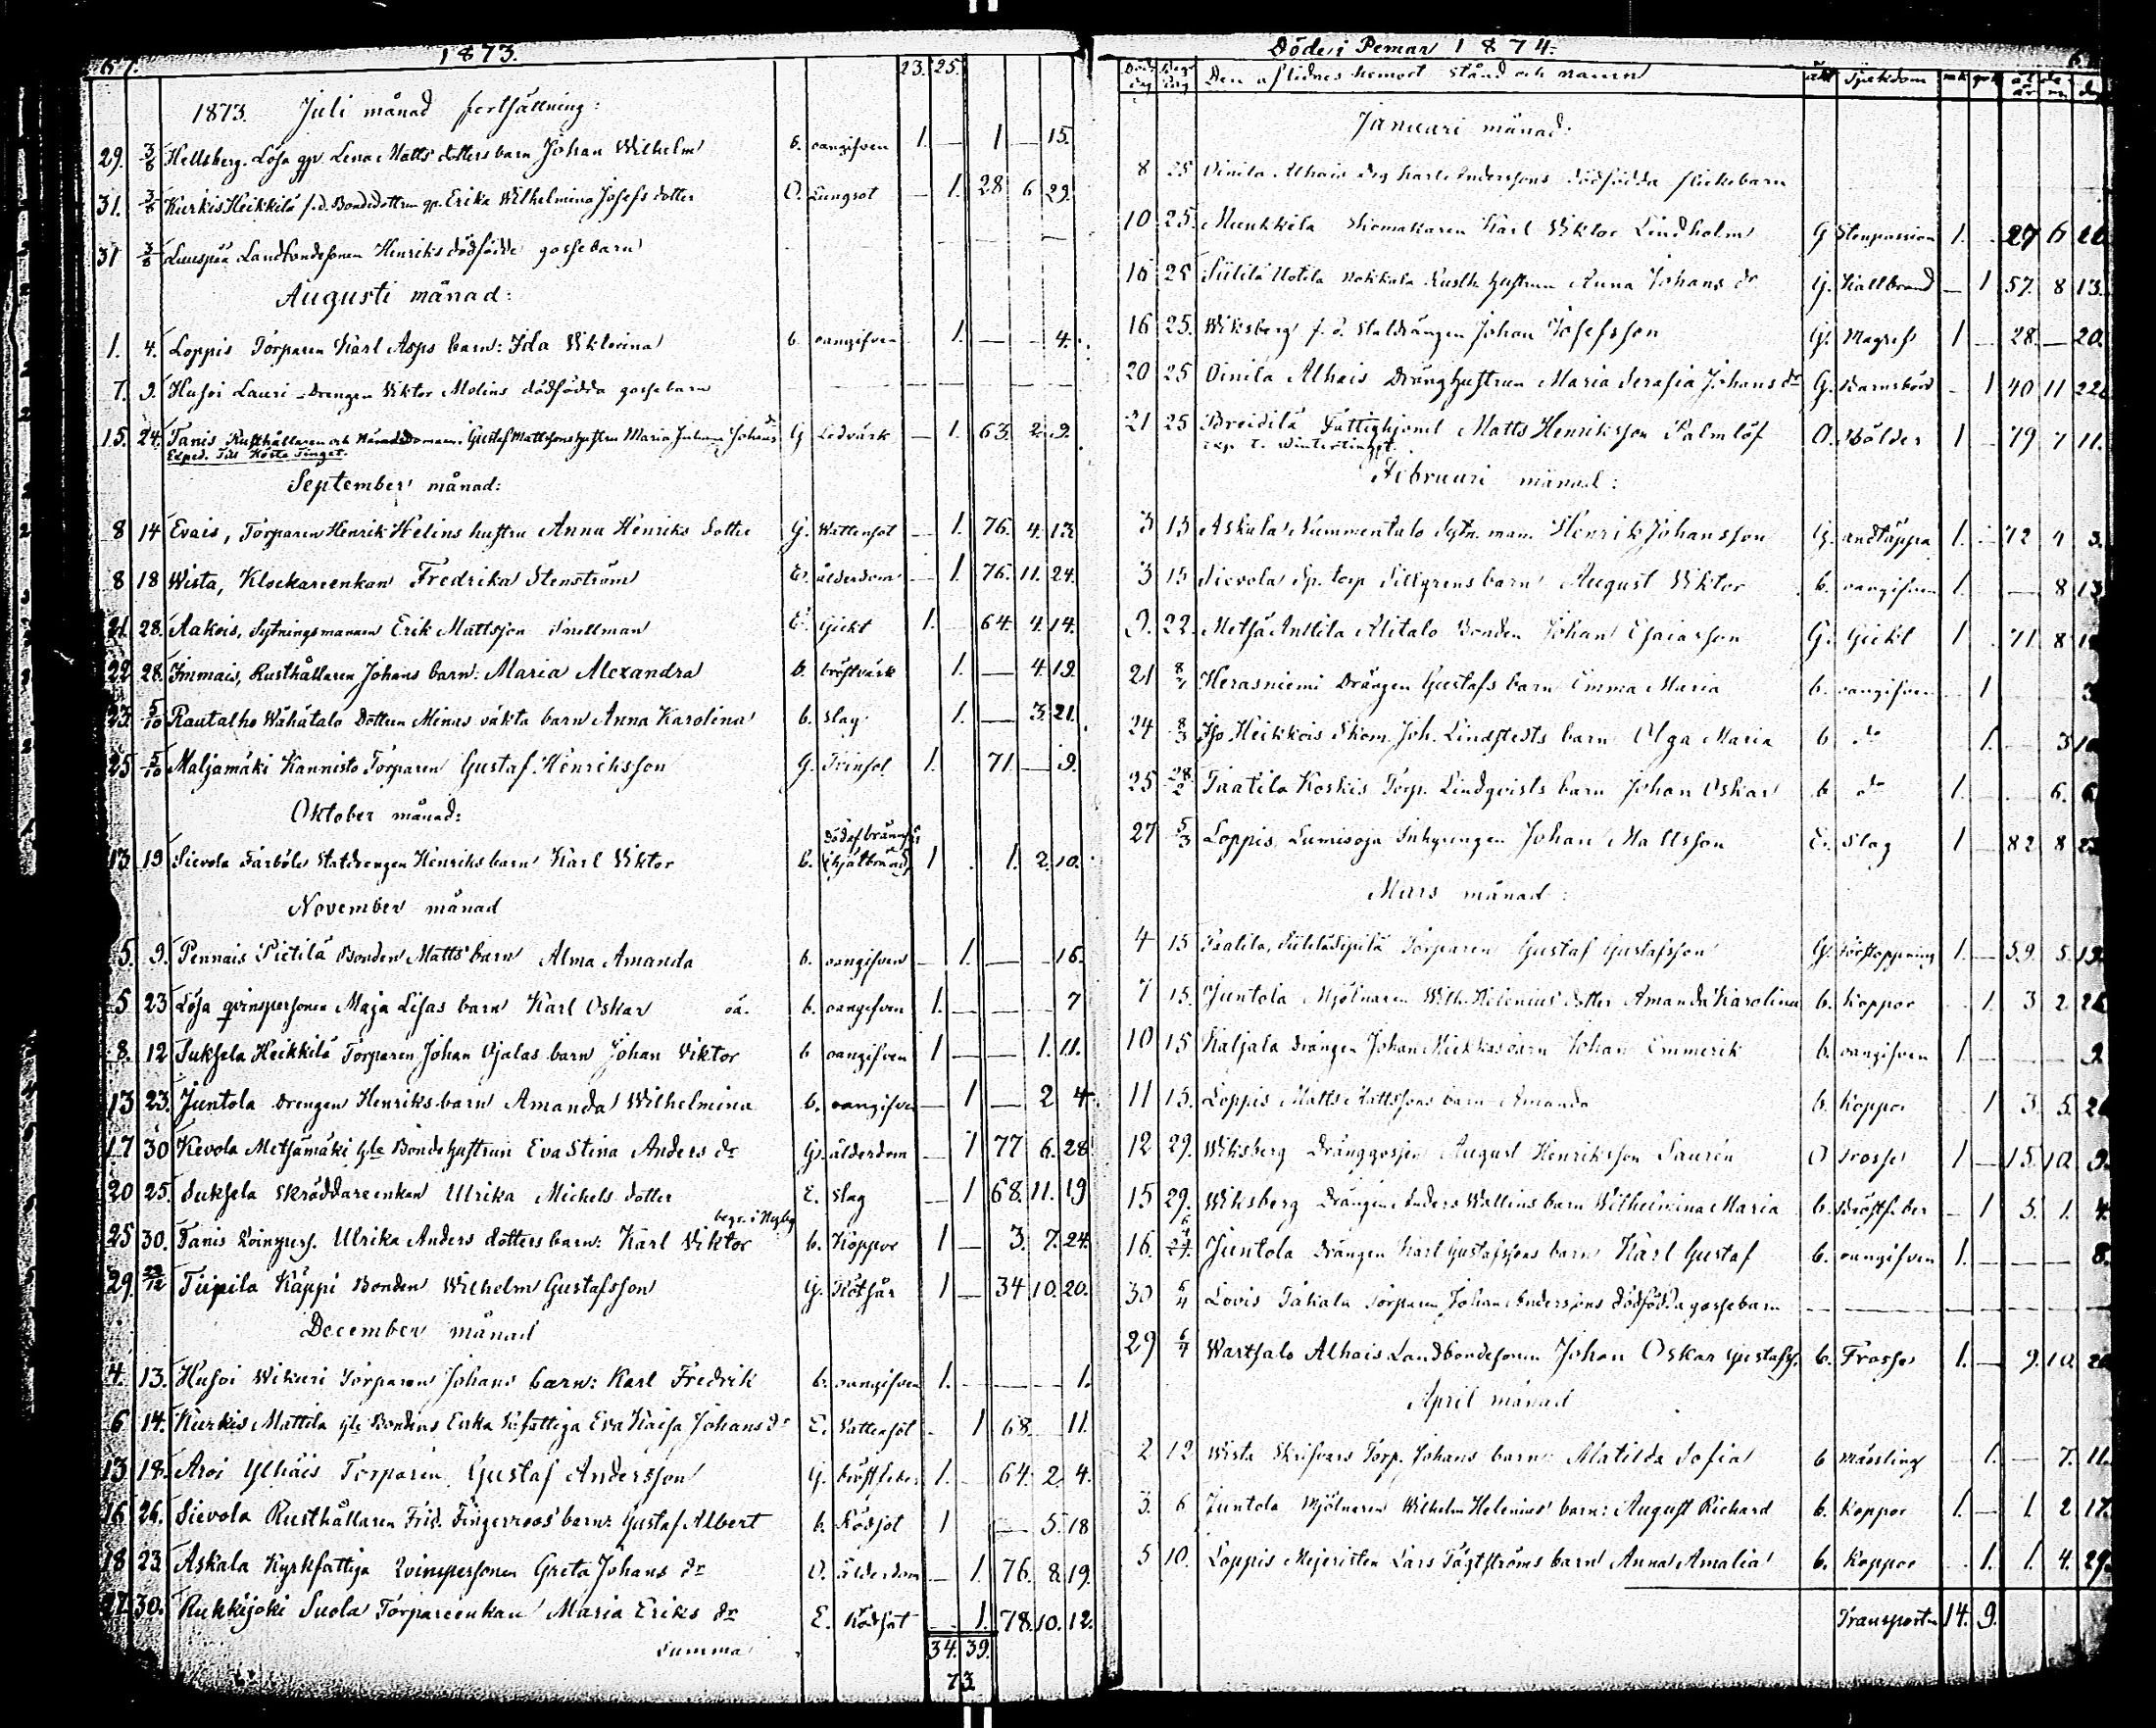 67. 1873. 23. 25.
1873. Juli månad fortsättning:
29. 3/8 Hellsberg. Lösa qp. Lena Matts dotters barn Johan Wilhelm b. oangifven 1. — 1 — 15.
31. 3/8 Kurkis Heikkilä f.d. Bondedottren qp. Erika Wilhelmina Josefs dotter O. Lungsot — 1. 28 6 29.
31 3/8 Luuspää Landbondesonen Henriks dödfödde gossebarn — — — — —
Augusti månad:
1. 4. Loppis Torparen Karl Asps barn: Ida Viktorina b. oangifven 1. — — 4.
7. 9. Husoi Lauri Drengen Viktor Molins dödfödda gossebarn — — — — —
15. 24. Tanis Rusthållaren och Nämndemann. Gustaf Mattssons hustru Maria Juliana Johans dr G Ledvärk — 1. 63. 2. 9.
Exped. Till Höste Tinget.
September månad:
8 14 Evais, Torparen Henrik Helins hustru Anna Henriks dotter G. Wattensot — 1. 76. 4. 13.
8 18 Wista, Klockareenkan Fredrika Stenström E. ålderdom — 1. 76. 11. 24.
21. 28. Aakois, Sytningsmannen Erik Mattsson Snellman E. Gickt 1. 64. 4. 14.
22 28. Immais, Rusthållaren Johans barn: Maria Alexandra b. bröstvärk 1. — 4. 19.
23. 5/10 Rautalho Wähätalo Dottren Minas oäkta barn Anna Karolina b. Slag 1. — 3. 21.
25 5/10 Maljamäki Kannisto Torparen Gustaf Henriksson G. Tvinsot 1. 71. — 9.
Oktober månad:
13 19 Sievola Färböle Statdrengen Henriks barn Karl Viktor b. Död af brännsår (ihjälbränd) 1 . 1. 2. 10.
November månad
5. 9. Pennais Pietilä Bonden Matts barn Alma Amanda b. oangifven — 1. — — 16.
5 23 Lösa qvinspersonen Maja Lisas barn Karl Oskar oä. b. oangifven 1. — — — 7
8. 12 Suksela Heikkilä Torparen Johan Ojalas barn Johan Viktor b oangifven 1 — — 1. 11.
13 23. Juntola Drengen Henriks barn Amanda Wilhelmina b. oangifven — 1 — 2 4.
17 30 Kevola Metsämäki Gle Bondehustrun Eva Stina Anders dr G. ålderdom — 1 77 6. 28
20 25. Suksela Skräddareenkan Ulrika Michels dotter E. Slag — 1 68. 11. 19
25 30. Tanis Qvinspers. Ulrika Anders dotters barn: Karl Viktor begr. i Nyby b. Koppor 1 — 3. 7. 24.
29. 29/12 Tiipila Käppi Bonden Wilhelm Gustafsson G. Rötsår 1 — 34 10. 20.
December månad
4. 13. Husoi Wikuri Torparen Johans barn: Karl Fredrik b. oangifven 1. — — — 1.
6 14. Kurkis Mattila Gle Bondens Enka K:fattiga Eva Kaisa Johans dr E. Vattensot . 1 68. 11.
13 18. Aroi Ylhäis Torparen Gustaf Andersson G. bröstfeber 1. — 64. 2. 4.
16. 26. Sievola Rusthållaren Frid. Fingerroos' barn: Gustaf Albert b. Rödsot 1 — 5. 18
18 23 Askala Kyrkfattiga Qvinspersonen Greta Johans dr O. ålderdom — 1. 76. 8. 19.
27. 30. Rukkijoki Suola Torpareenkan Maria Eriks dr E. Rödsot — 1. 78. 10. 12.
Summa 34. 39.
73.
Döde i Pemar 1874.
Död dag Begr dag Den aflidnes hemort stånd och namn Sjukdom mk qvk ål der
Januari månad:
8 25 Oinila Alhais Drg Karl Anderssons dödfödda flickebarn
10 25. Munkkila Skomakaren Karl Viktor Lindholm G Stenpassion 1. . 27 6 20
16 25 Siitilä Uotila Nokkala Rusth. hustrun Anna Johans dr G. Kallbrand — 1 57. 8 13.
16 25. Wiksberg f.d. Staldrängen Johan Josefsson G. Magref 1 — 28. — 20.
20 25 Oinila Alhais Dränghustrun Maria Serafia Johans dr G. Barnsbörd — 1 40 11 22.
21 25 Breidilä Fattighjonet Matts Henriksson Palmlöf O. Bölder 1 — 79 7 11.
exp. t. Wintertinget.
Februari månad:
3 15 Askala Nummentalo Sytn. man. Henrik Johansson G. andtäppa 1. — 72 4 3.
3 15 Sievola Sp. torp Sillgrens barn August Viktor b. oangifven 1. — 8 13
9. 22. Metsä Anttila Alitalo Bonden Johan Esaiasson G. Gickt 1 . 71. 8
21 8/3 Kerasniemi Drängen Gustafs barn Emma Maria b. oangifven — 1
24 8/3 Iso Heikkois Skom. Joh. Lindstedts barn Olga Maria b do 1. 3
25 28/2 Taatila Koskis Torp. Lindqvists barn Johan Oskar b do 1. — 6. 6
27 5/3 Loppis Lumisoja Inhysingen Johan Mattsson E. Slag 1 — 82 8 23
Mars månad:
4 15 Taatila, Siitilä Sipilä Torparen Gustaf Gustafsson G. förstoppning 1. — 59. 5. 19.
7 15. Juntola Mjölnaren Wilh. Helenius' dotter Amanda Karolina b. Koppor 1. 3 2 26
10 15 Kaljala Drängen Johan Mickkas barn Johan Emmerik b. oangifven 1. — — — 9.
11 15. Loppis Matts Mattssons barn Amanda b. Koppor 1 3. 5. 20
12 29. Wiksberg Dränggossen August Henriksson Saurén O Frossa 1 — 15. 10. 9.
15 29. Wiksberg Drängen Anders Wallins barn Wilhelmina Maria b. Bröstfeber — 1 5. 1. 4.
16. 6/4 Juntola Drängen Karl Gustafssons barn Karl Gustaf b. oangifven 1. — — — 8.
30 6/4 Lovis Takala Torparen Johan Anderssons dödfödda gossebarn — — — — —
29 6/4 Wartsalo Alhais Landbondesonen Johan Oskar Gustafss. b. Frossa 1. — 9. 10. 20
April månad
2 12 Wista Skrifvars Torp. Johans barn: Matilda Sofia b mässling 1. — 7. 11.
3. 6 Juntola Mjölnaren Wilhelm Helenius' barn: August Richard b. Koppor 1. — 1. 2 17.
5 10. Loppis Mejeristen Lars Tägtströms barn Anna Amalia b. Koppor . 1. 1. 4. 29.
Transport 14. 9.